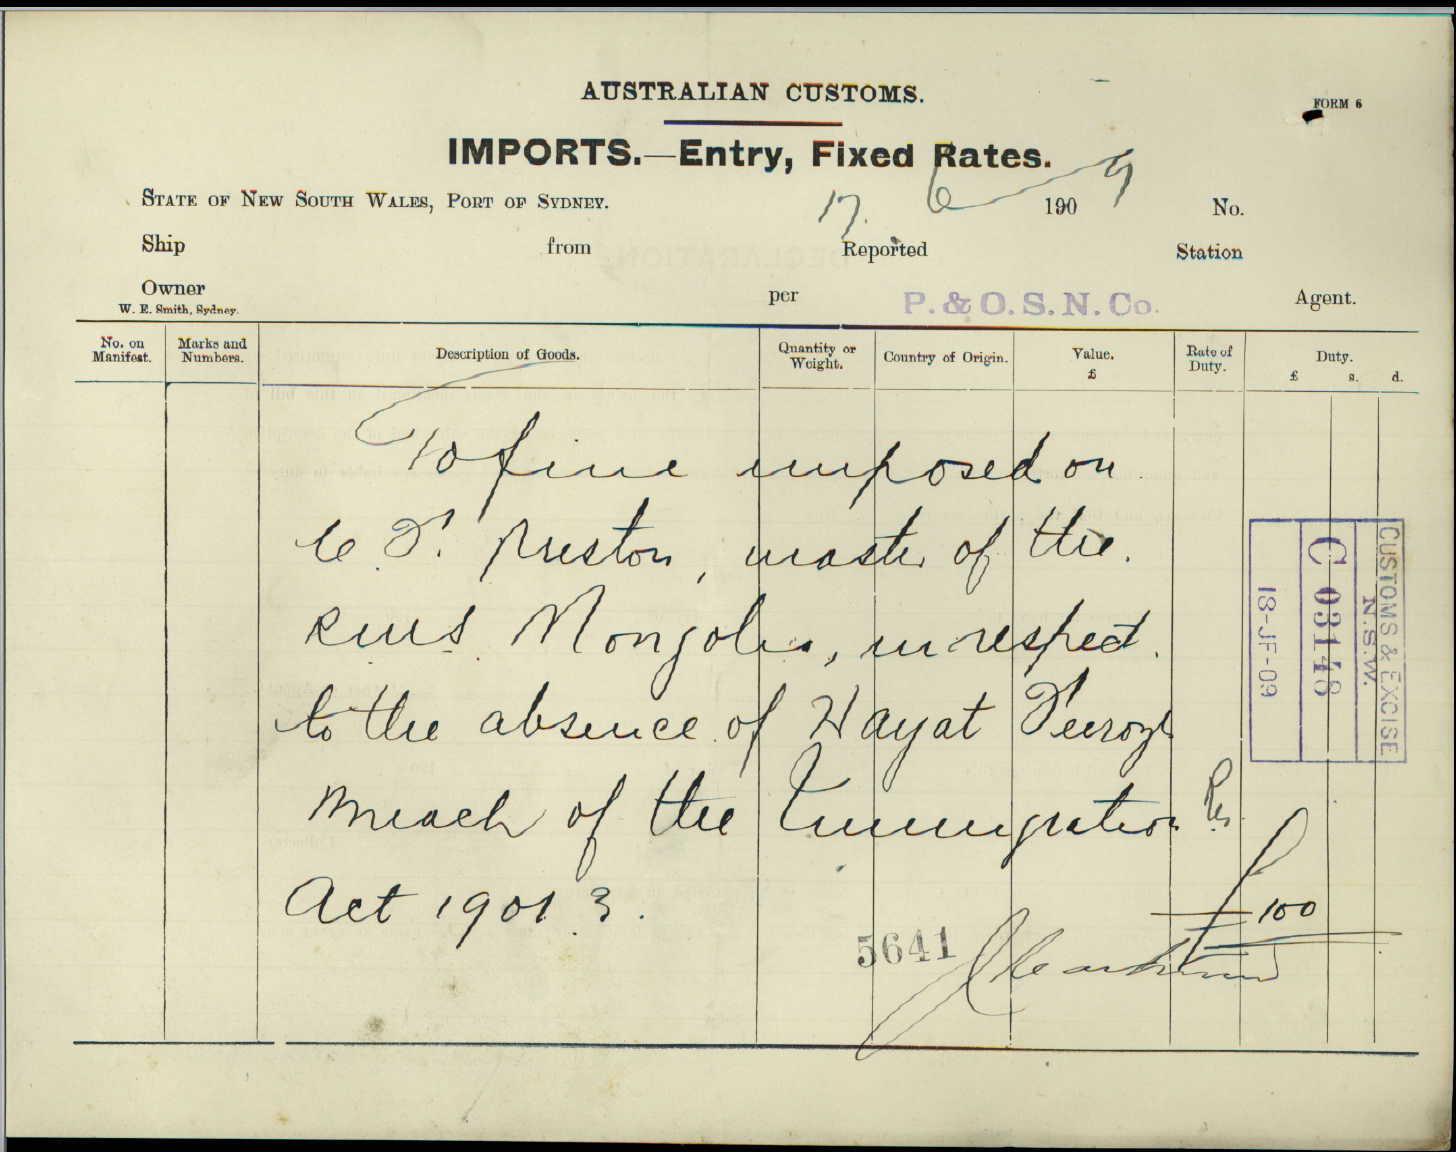 AUSTRALIAN CUSTOMS.
FORM 6
IMPORTS.—Entry, Fixed Rates.
STATE OF NEW SOUTH WALES, PORT OF SYDNEY. 17. 6 1909 No.
Ship from Reported Station
Owner per P. & O. S. N. Co. Agent.
W. E. Smith, Sydney.
No. on Manifest. Marks and Numbers. Description of Goods. Quantity or Weight. Country of Origin. Value. £ Rate of Duty. Duty. £ s. d.
To fine imposed on
C. F. Preston, master of the
RMS Mongolia, in respect
to the absence of Hayat Feerozh
Breach of the Immigration
Act 1901 3. £100
5641
CUSTOMS & EXCISE
N.S.W.
C 03148
18-JF-09